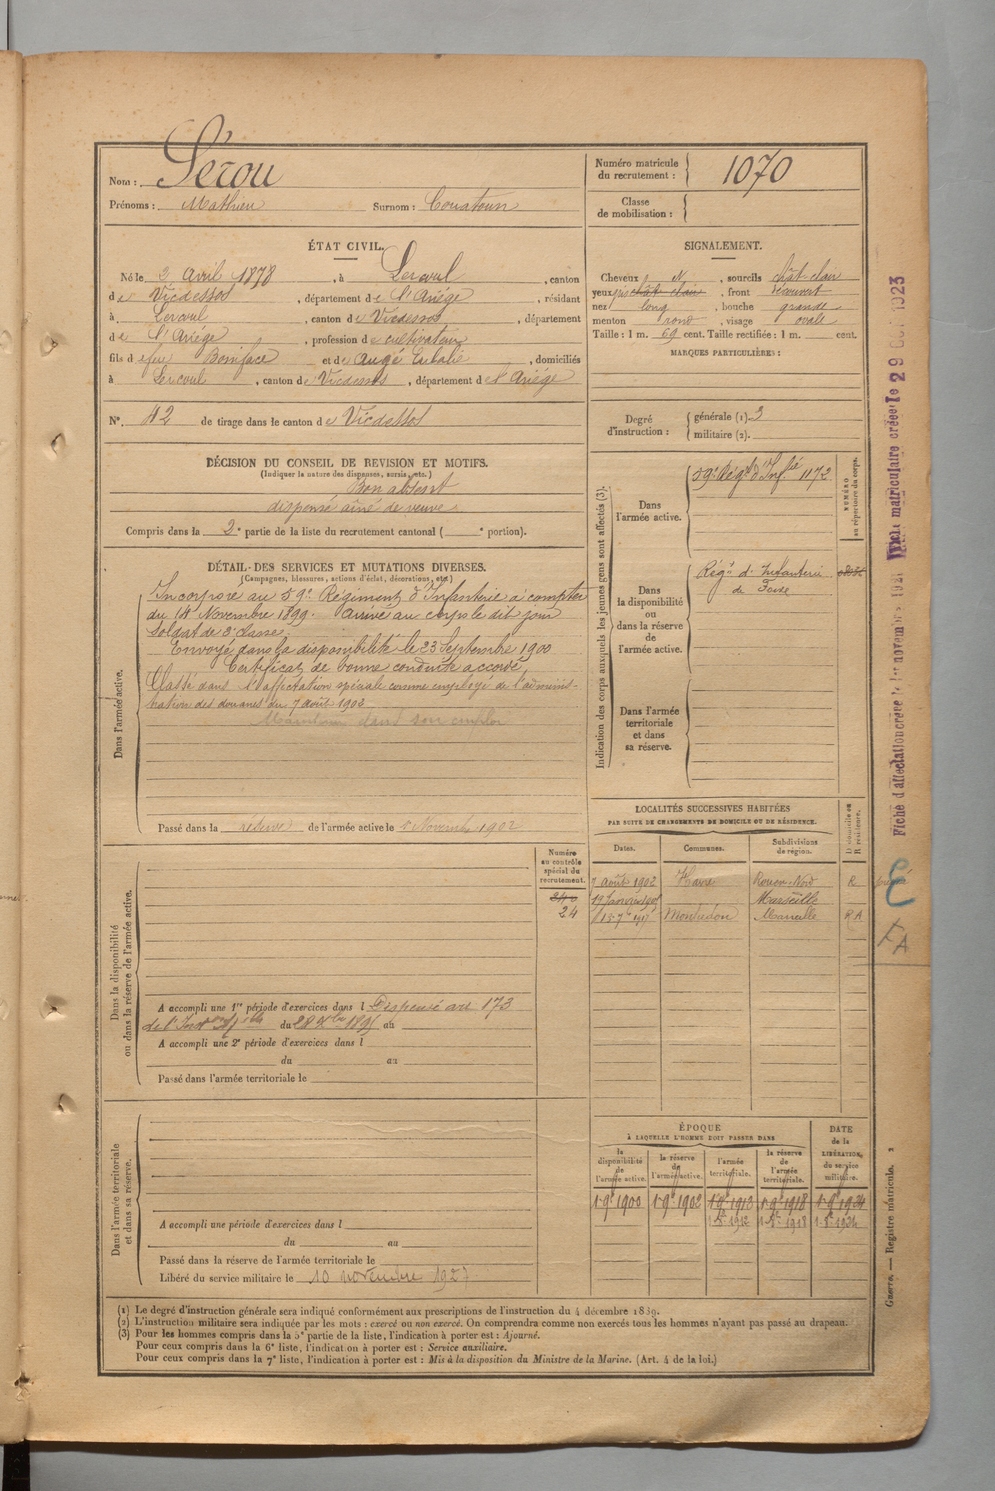 Nom : Sérou
Prénoms : Mathieu Surnom : Couatoun
Numéro matricule du recrutement : 1070
Classe de mobilisation :
ÉTAT CIVIL.
Né le 2 Avril 1878, à Lercoul, canton
de Vicdessos, département de l'Ariége, résidant
à Lercoul, canton de Vicdessos, département
de l'Ariége, profession de cultivateur
fils de feu Boniface et de Augé Eulalie, domiciliés
à Lercoul, canton de Vicdessos, département de l'Ariége
N°. 42 de tirage dans le canton de Vicdessos
SIGNALEMENT.
Cheveux N, sourcils chât clair
yeux gris chât clair, front découvert
nez long, bouche grande
menton rond, visage ovale
Taille : 1 m. 69 cent. Taille rectifiée : 1 m. cent.
MARQUES PARTICULIÈRES :
Degré d'instruction :
générale (1). 3
militaire (2).
DÉCISION DU CONSEIL DE REVISION ET MOTIFS.
(Indiquer la nature des dispenses, sursis, etc.)
Bon absent
dispensé aîné de veuve
Compris dans la 2e partie de la liste du recrutement cantonal ( e portion).
DÉTAIL DES SERVICES ET MUTATIONS DIVERSES.
(Campagnes, blessures, actions d'éclat, décorations, etc.)
Dans l'armée active.
Incorporé au 59e Régiment d'Infanterie à compter
du 14 Novembre 1899. Arrivé au corps le dit jour
Soldat de 2e classe.
Envoyé dans la disponibilité le 23 Septembre 1900
Certificat de bonne conduite accordé
Classé dans l'affectation spéciale comme employé de l'adminis-
tration des douanes du 7 août 1902
Maintenu dans son emploi
Passé dans la réserve de l'armée active le 1 Novembre 1902
Indication des corps auxquels les jeunes gens sont affectés (3).
NUMÉRO au répertoire du corps.
Dans l'armée active.
59e Régt d'Infie 1172
Dans la disponibilité ou dans la réserve de l'armée active.
Régt d'Infanterie
de Foix
Dans l'armée territoriale et dans sa réserve.
LOCALITÉS SUCCESSIVES HABITÉES
PAR SUITE DE CHANGEMENTS DE DOMICILE OU DE RÉSIDENCE.
Dates. Communes. Subdivisions de région. D domicile ou R résidence.
7 Août 1902 Havre Rouen-Nord R
Marseille
Montredon Marseille R A
Dans la disponibilité ou dans la réserve de l'armée active.
Numéro au contrôle spécial du recrutement.
240
24
A accompli une 1re période d'exercices dans l Dispensé art 173
du 28 Xbre au
A accompli une 2e période d'exercices dans l
du au
Passé dans l'armée territoriale le
Dans l'armée territoriale et dans sa réserve.
A accompli une période d'exercices dans l
du au
Passé dans la réserve de l'armée territoriale le
Libéré du service militaire le 10 novembre 1927
ÉPOQUE
A LAQUELLE L'HOMME DOIT PASSER DANS
DATE de la LIBÉRATION du service militaire.
la disponibilité de l'armée active. la réserve de l'armée active. l'armée territoriale. la réserve de l'armée territoriale.
1 9e 1900 1 9e 1902 1 9e 1918 1 9e 1924
(1) Le degré d'instruction générale sera indiqué conformément aux prescriptions de l'instruction du 4 décembre 1889.
(2) L'instruction militaire sera indiquée par les mots : exercé ou non exercé. On comprendra comme non exercés tous les hommes n'ayant pas passé au drapeau.
(3) Pour les hommes compris dans la 5e partie de la liste, l'indication à porter est : Ajourné.
Pour ceux compris dans la 6e liste, l'indication à porter est : Service auxiliaire.
Pour ceux compris dans la 7e liste, l'indication à porter est : Mis à la disposition du Ministre de la Marine. (Art. 4 de la loi.)
Guerre. — Registre matricule. 2
Fiche d'affectation créée le 1er novembre 1921 Fiche matriculaire créée le 29 Oct 1923
E
FA